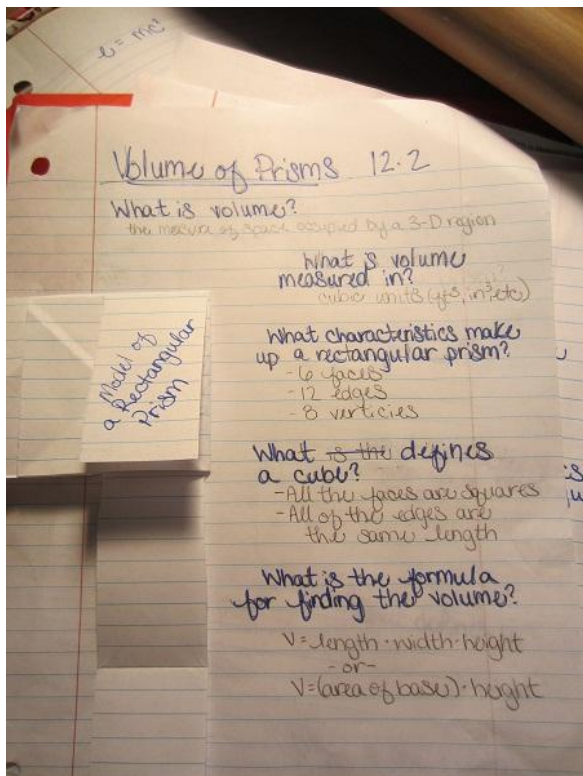 e = mc²
Volume of Prisms 12.2
What is volume?
the measure of space occupied by a 3-D region
What is volume
measured in?
cubic units (yts, in³, etc)
What characteristics make
up a rectangular prism?
- 6 faces
- 12 edges
- 8 verticies
Model of
a Rectangular
Prism
What is the defines
a cube?
- All the faces are squares
- All of the edges are
the same length
What is the formula
for finding the volume?
V = length · width · height
- or -
V = (area of base) · height